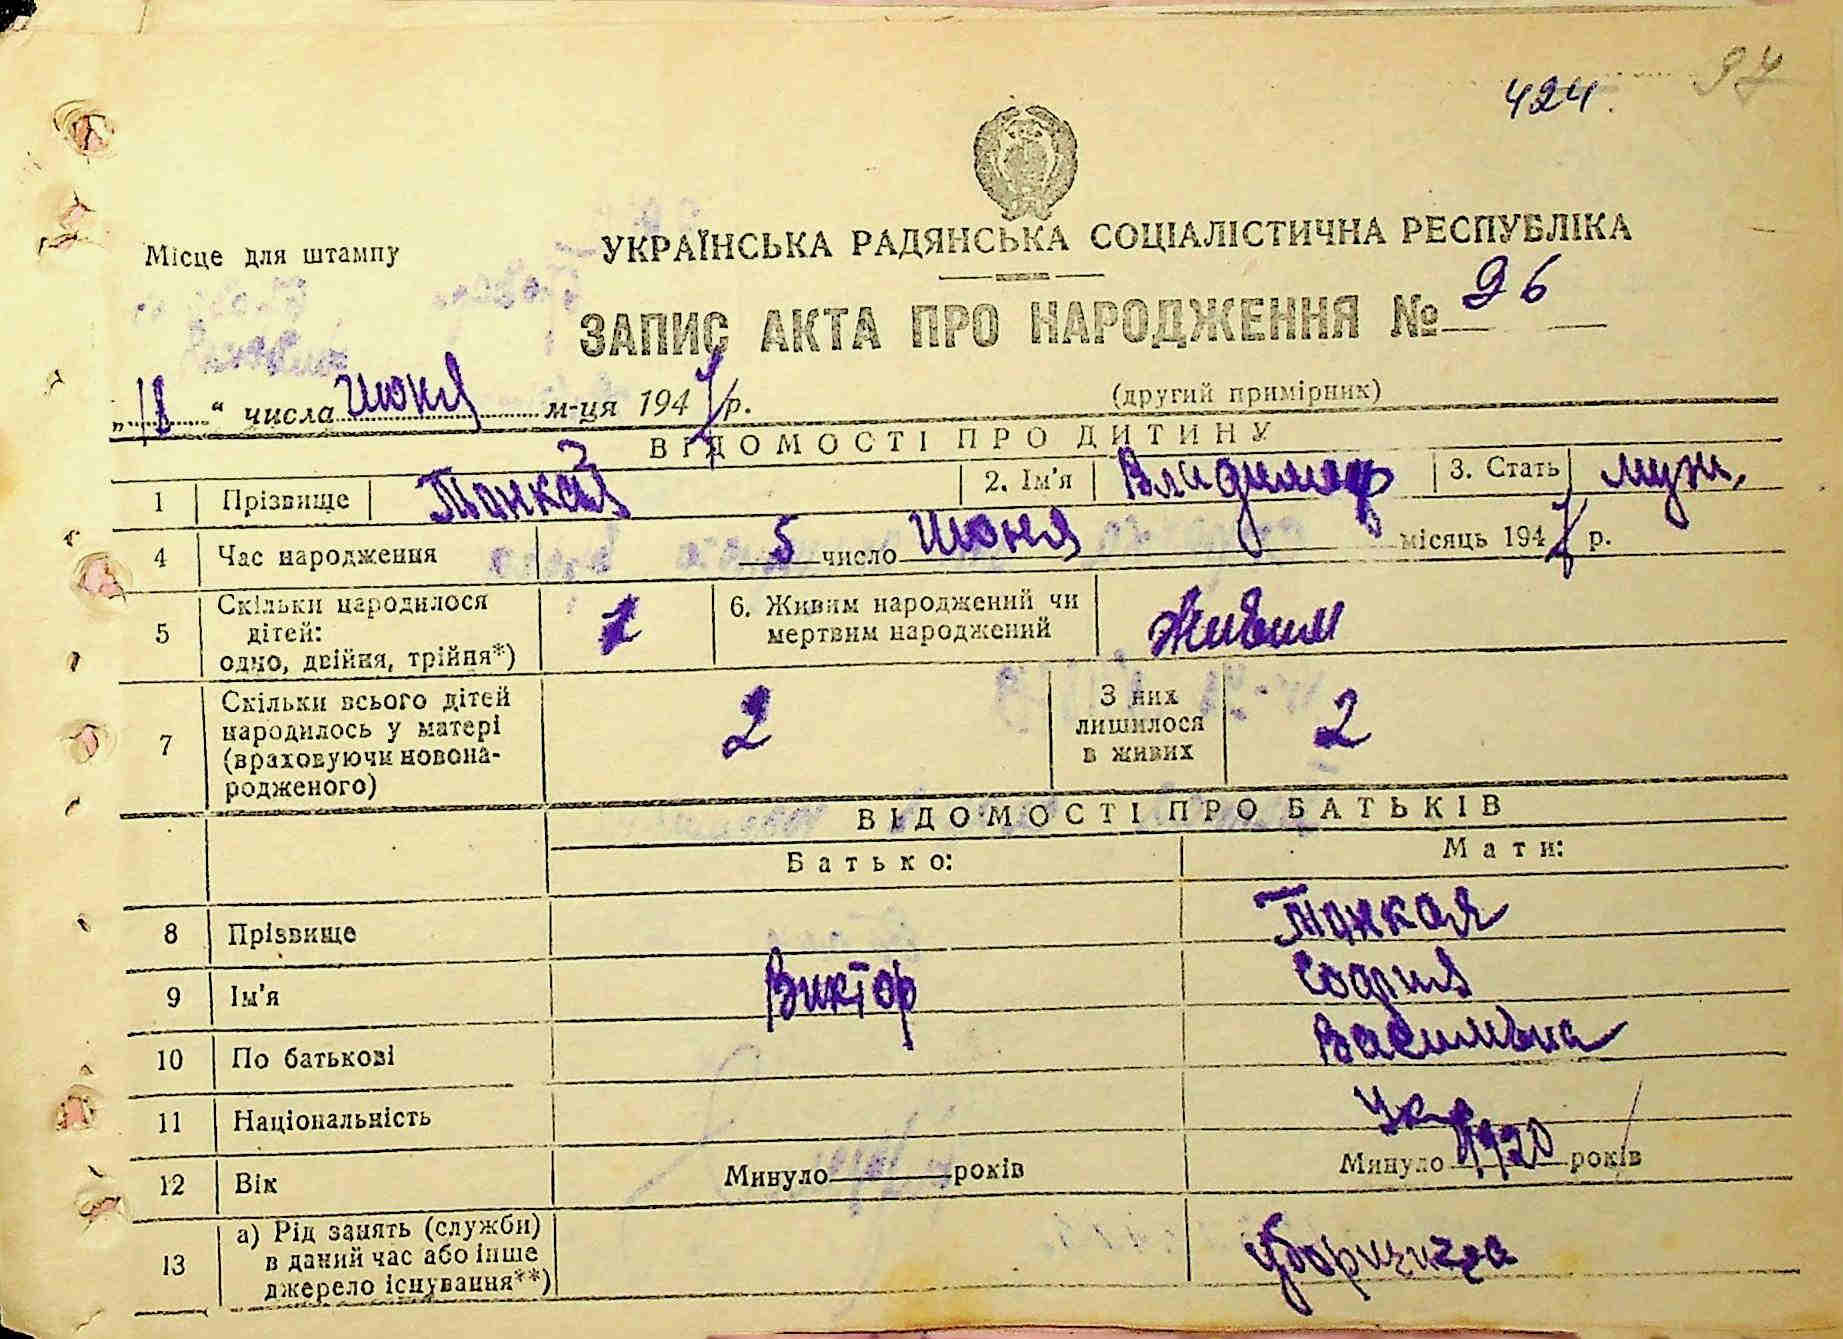 97
424.
Місце для штампу
УКРАЇНСЬКА РАДЯНСЬКА СОЦІАЛІСТИЧНА РЕСПУБЛІКА
ЗАПИС АКТА ПРО НАРОДЖЕННЯ № 96
„18“ числа Июня м-ця 1947 р.
(другий примірник)
ВІДОМОСТІ ПРО ДИТИНУ
1 Прізвище Тонкой 2. Ім'я Владимир 3. Стать муж.
4 Час народження 5 число Июня місяць 1947 р.
5 Скільки народилося дітей: одно, двійня, трійня*) 1 6. Живим народжений чи мертвим народжений Живым
7 Скільки всього дітей народилось у матері (враховуючи новонародженого) 2 З них лишилося в живих 2
ВІДОМОСТІ ПРО БАТЬКІВ
Батько: Мати:
8 Прізвище Тонкая
9 Ім'я Виктор София
10 По батькові Васильевна
11 Національність Укр
12 Вік Минуло років Минуло 1920 років
13 а) Рід занять (служби) в даний час або інше джерело існування**) уборщица